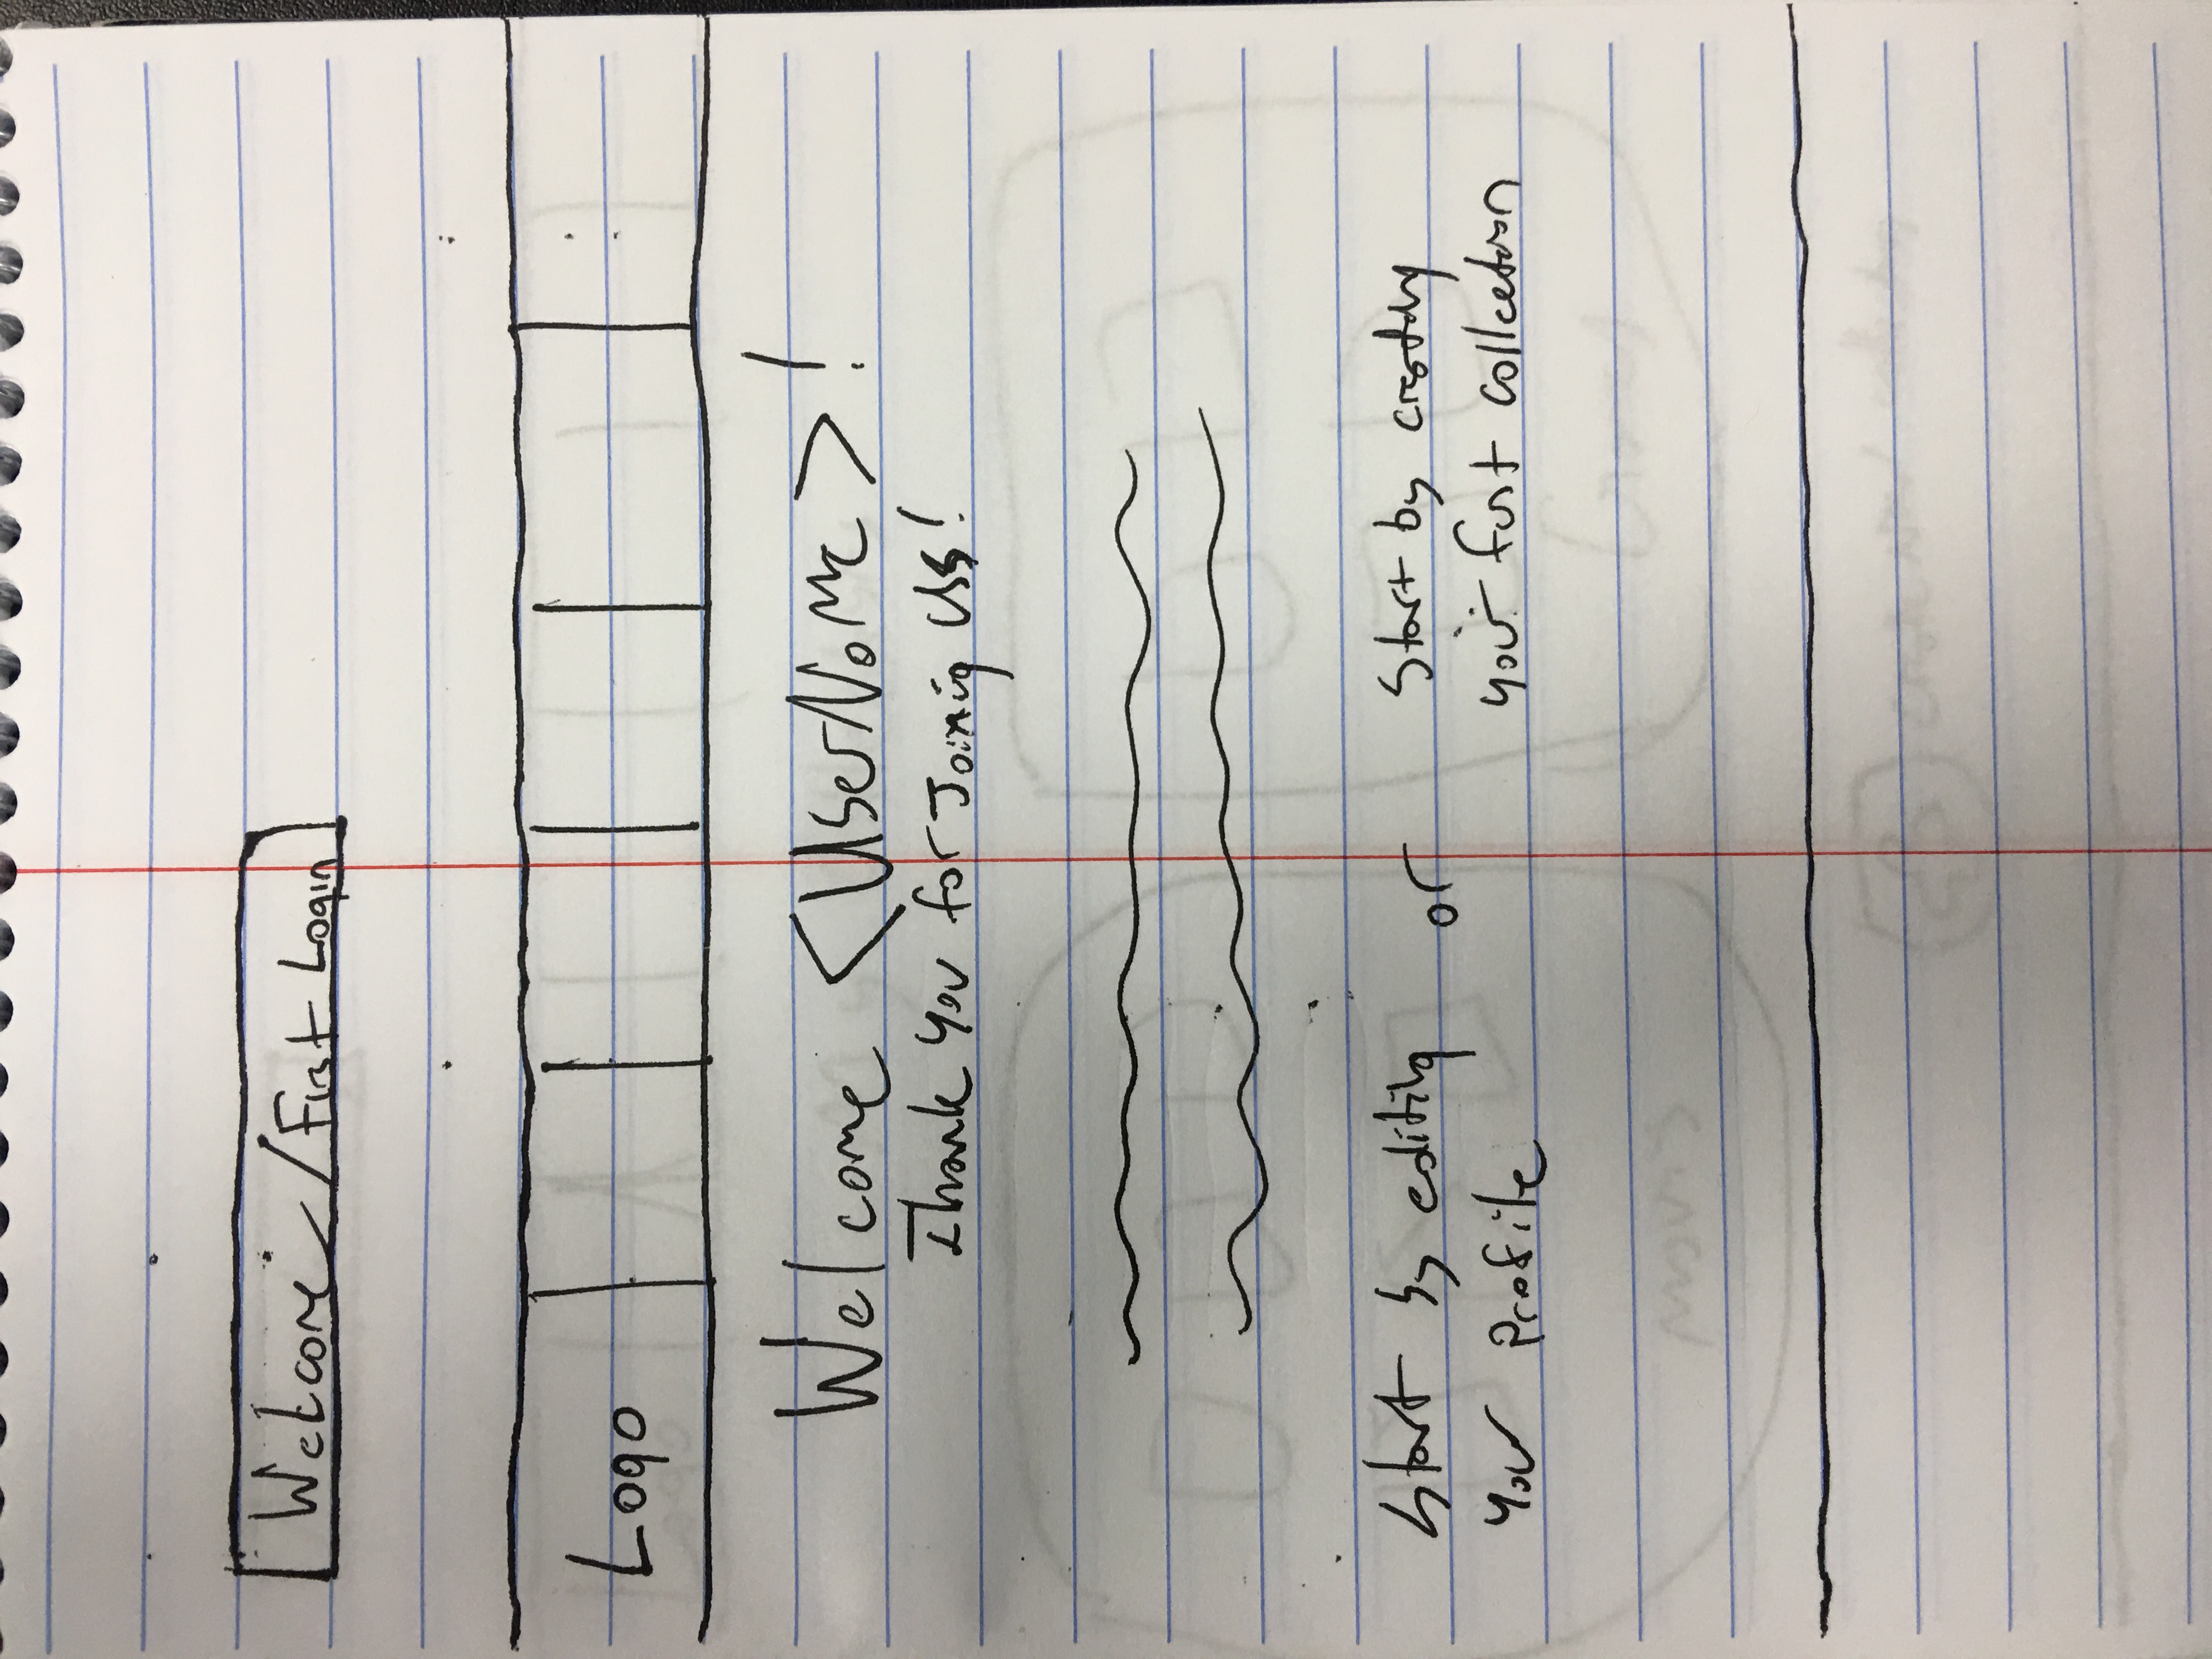 Welcome / First Login
Logo
Welcome <UserName>!
Thank you for Joining Us!
Start by editing or Start by creating
your Profile your first collection